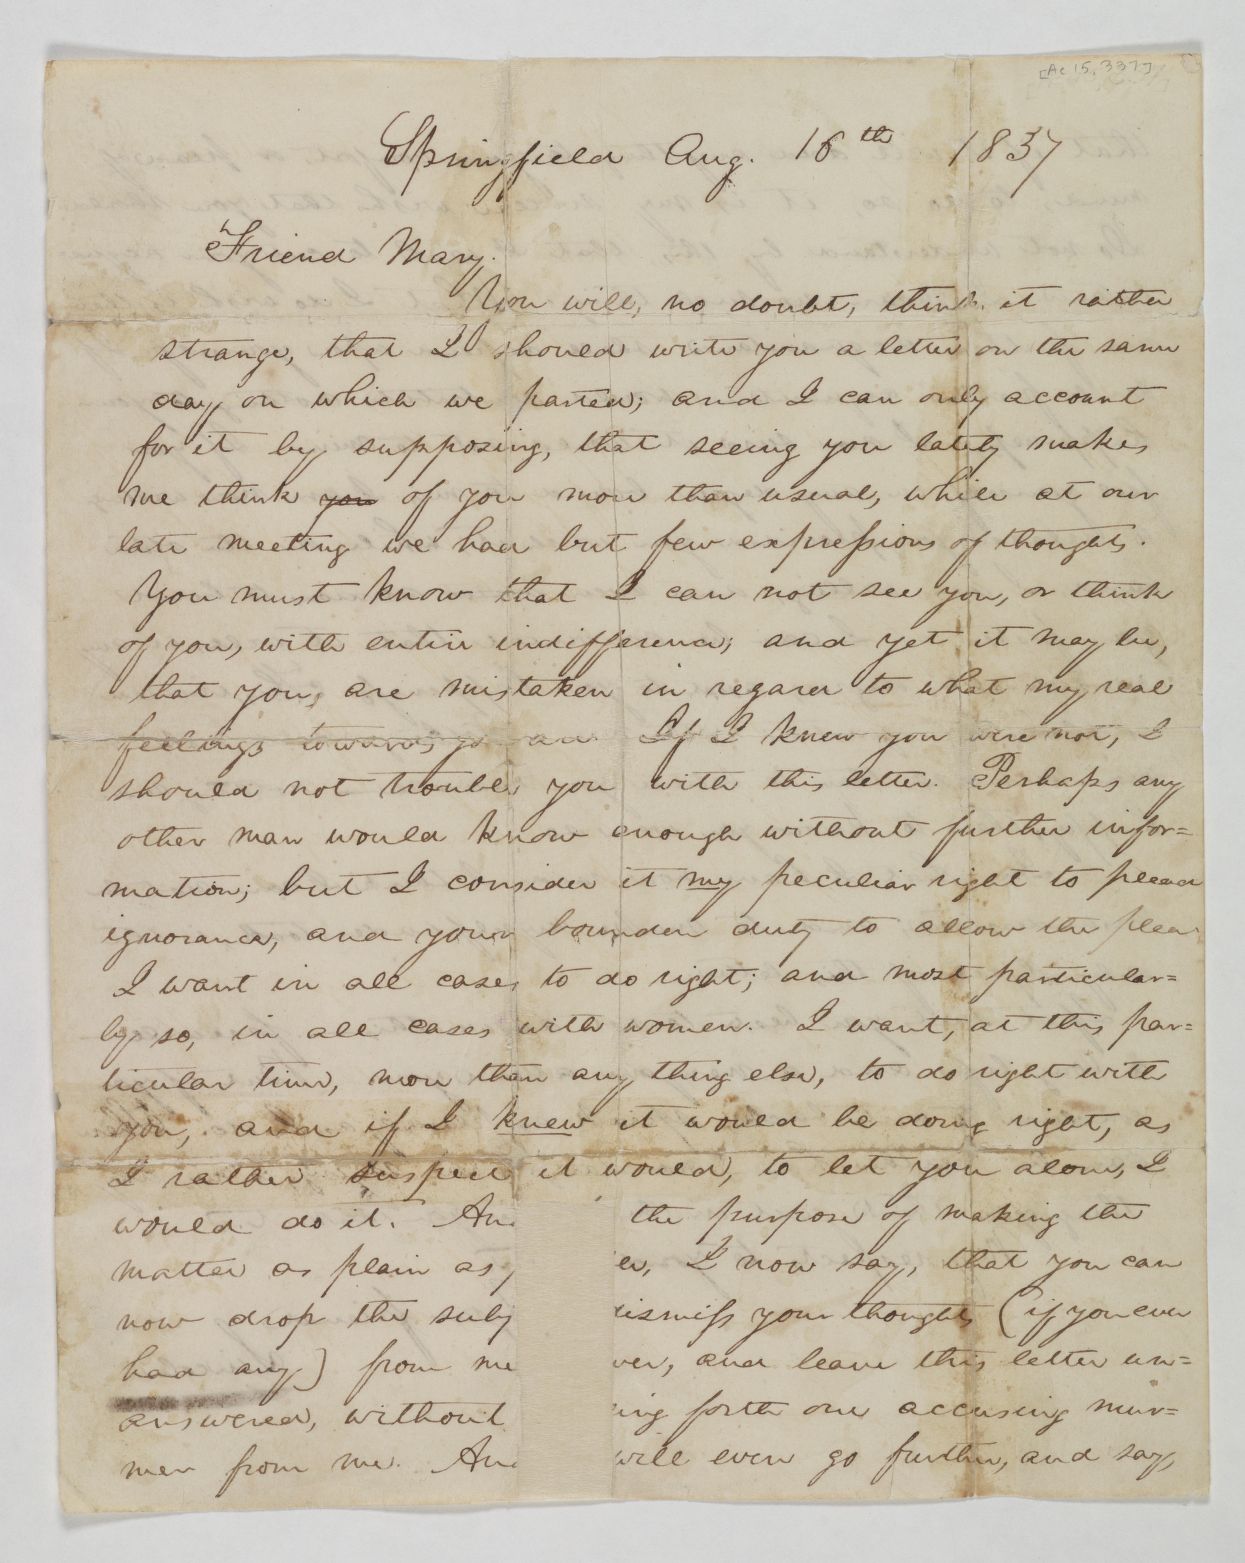 [Ac 15,337]
Springfield Aug. 16th 1837
Friend Mary.
You will, no doubt, think it rather
strange, that I should write you a letter on the same
day on which we parted; and I can only account
for it by supposing, that seeing you lately makes
me think you of you more than usual, while at our
late meeting we had but few expressions of thoughts.
You must know that I can not see you, or think
of you, with entire indifference; and yet it may be,
that you, are mistaken in regard to what my real
feelings towards yo are If I knew you were not, I
should not trouble you with this letter. Perhaps any
other man would know enough without further infor=
mation; but I consider it my peculiar right to plead
ignorance, and your bounden duty to allow the plea
I want in all cases to do right; and most particular=
ly so, in all cases with women. I want, at this par=
ticular time, more than any thing else, to do right with
you, and if I knew it would be doing right, as
I rather suspect it would, to let you alone, I
would do it. An the purpose of making the
matter as plain as er, I now say, that you can
now drop the subj ismiss your thoughts (if you ever
had any) from me ver, and leave this letter un=
answered, without ing forth one accusing mur=
mer from me. An will even go further, and say,